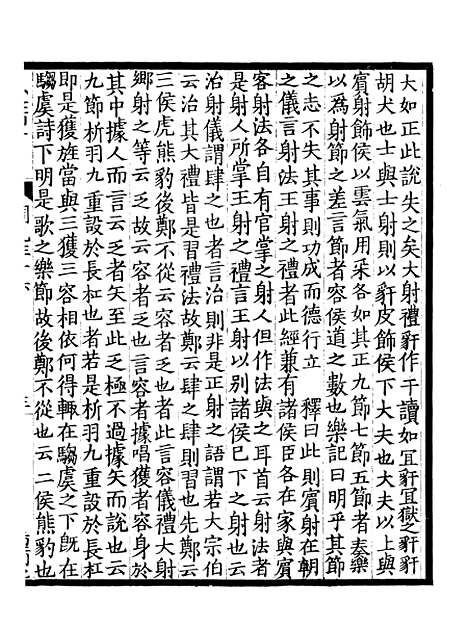 大如正此說失之矣大射禮豻作干讀如宜豻宜獄之豻豻
胡犬也士與士射則以豻皮飾侯下大夫也大夫以上與
賓射飾侯以雲氣用采各如其正九節七節五節者奏樂
以為射節之差言節者容侯道之數也樂記曰明乎其節
之志不失其事則功成而德行立 釋曰此則賓射在朝
之儀言射法王射之禮者此經兼有諸侯臣各在家與賓
客射法各自有官掌之射人但作法與之耳首云射法者
是射人所掌王射之禮言王射以別諸侯已下之射也云
治射儀謂肆之也者言治則非是正射之語謂若大宗伯
云治其大禮皆是習禮法故鄭云肆之肆則習也先鄭云
三侯虎熊豹後鄭不從云容者乏也者此言容儀禮大射
鄉射之等云乏故云容者乏也也言容者據唱獲者容身於
其中據人而言云乏者矢至此乏極不過據矢而說也云
九節析羽九重設於長杠也者若是析羽九重設於長杠
即是獲旌當與三獲三容相依何得輒在騶虞之下旣在
騶虞詩下明是歌之樂節故後鄭不從也云二侯熊豹也